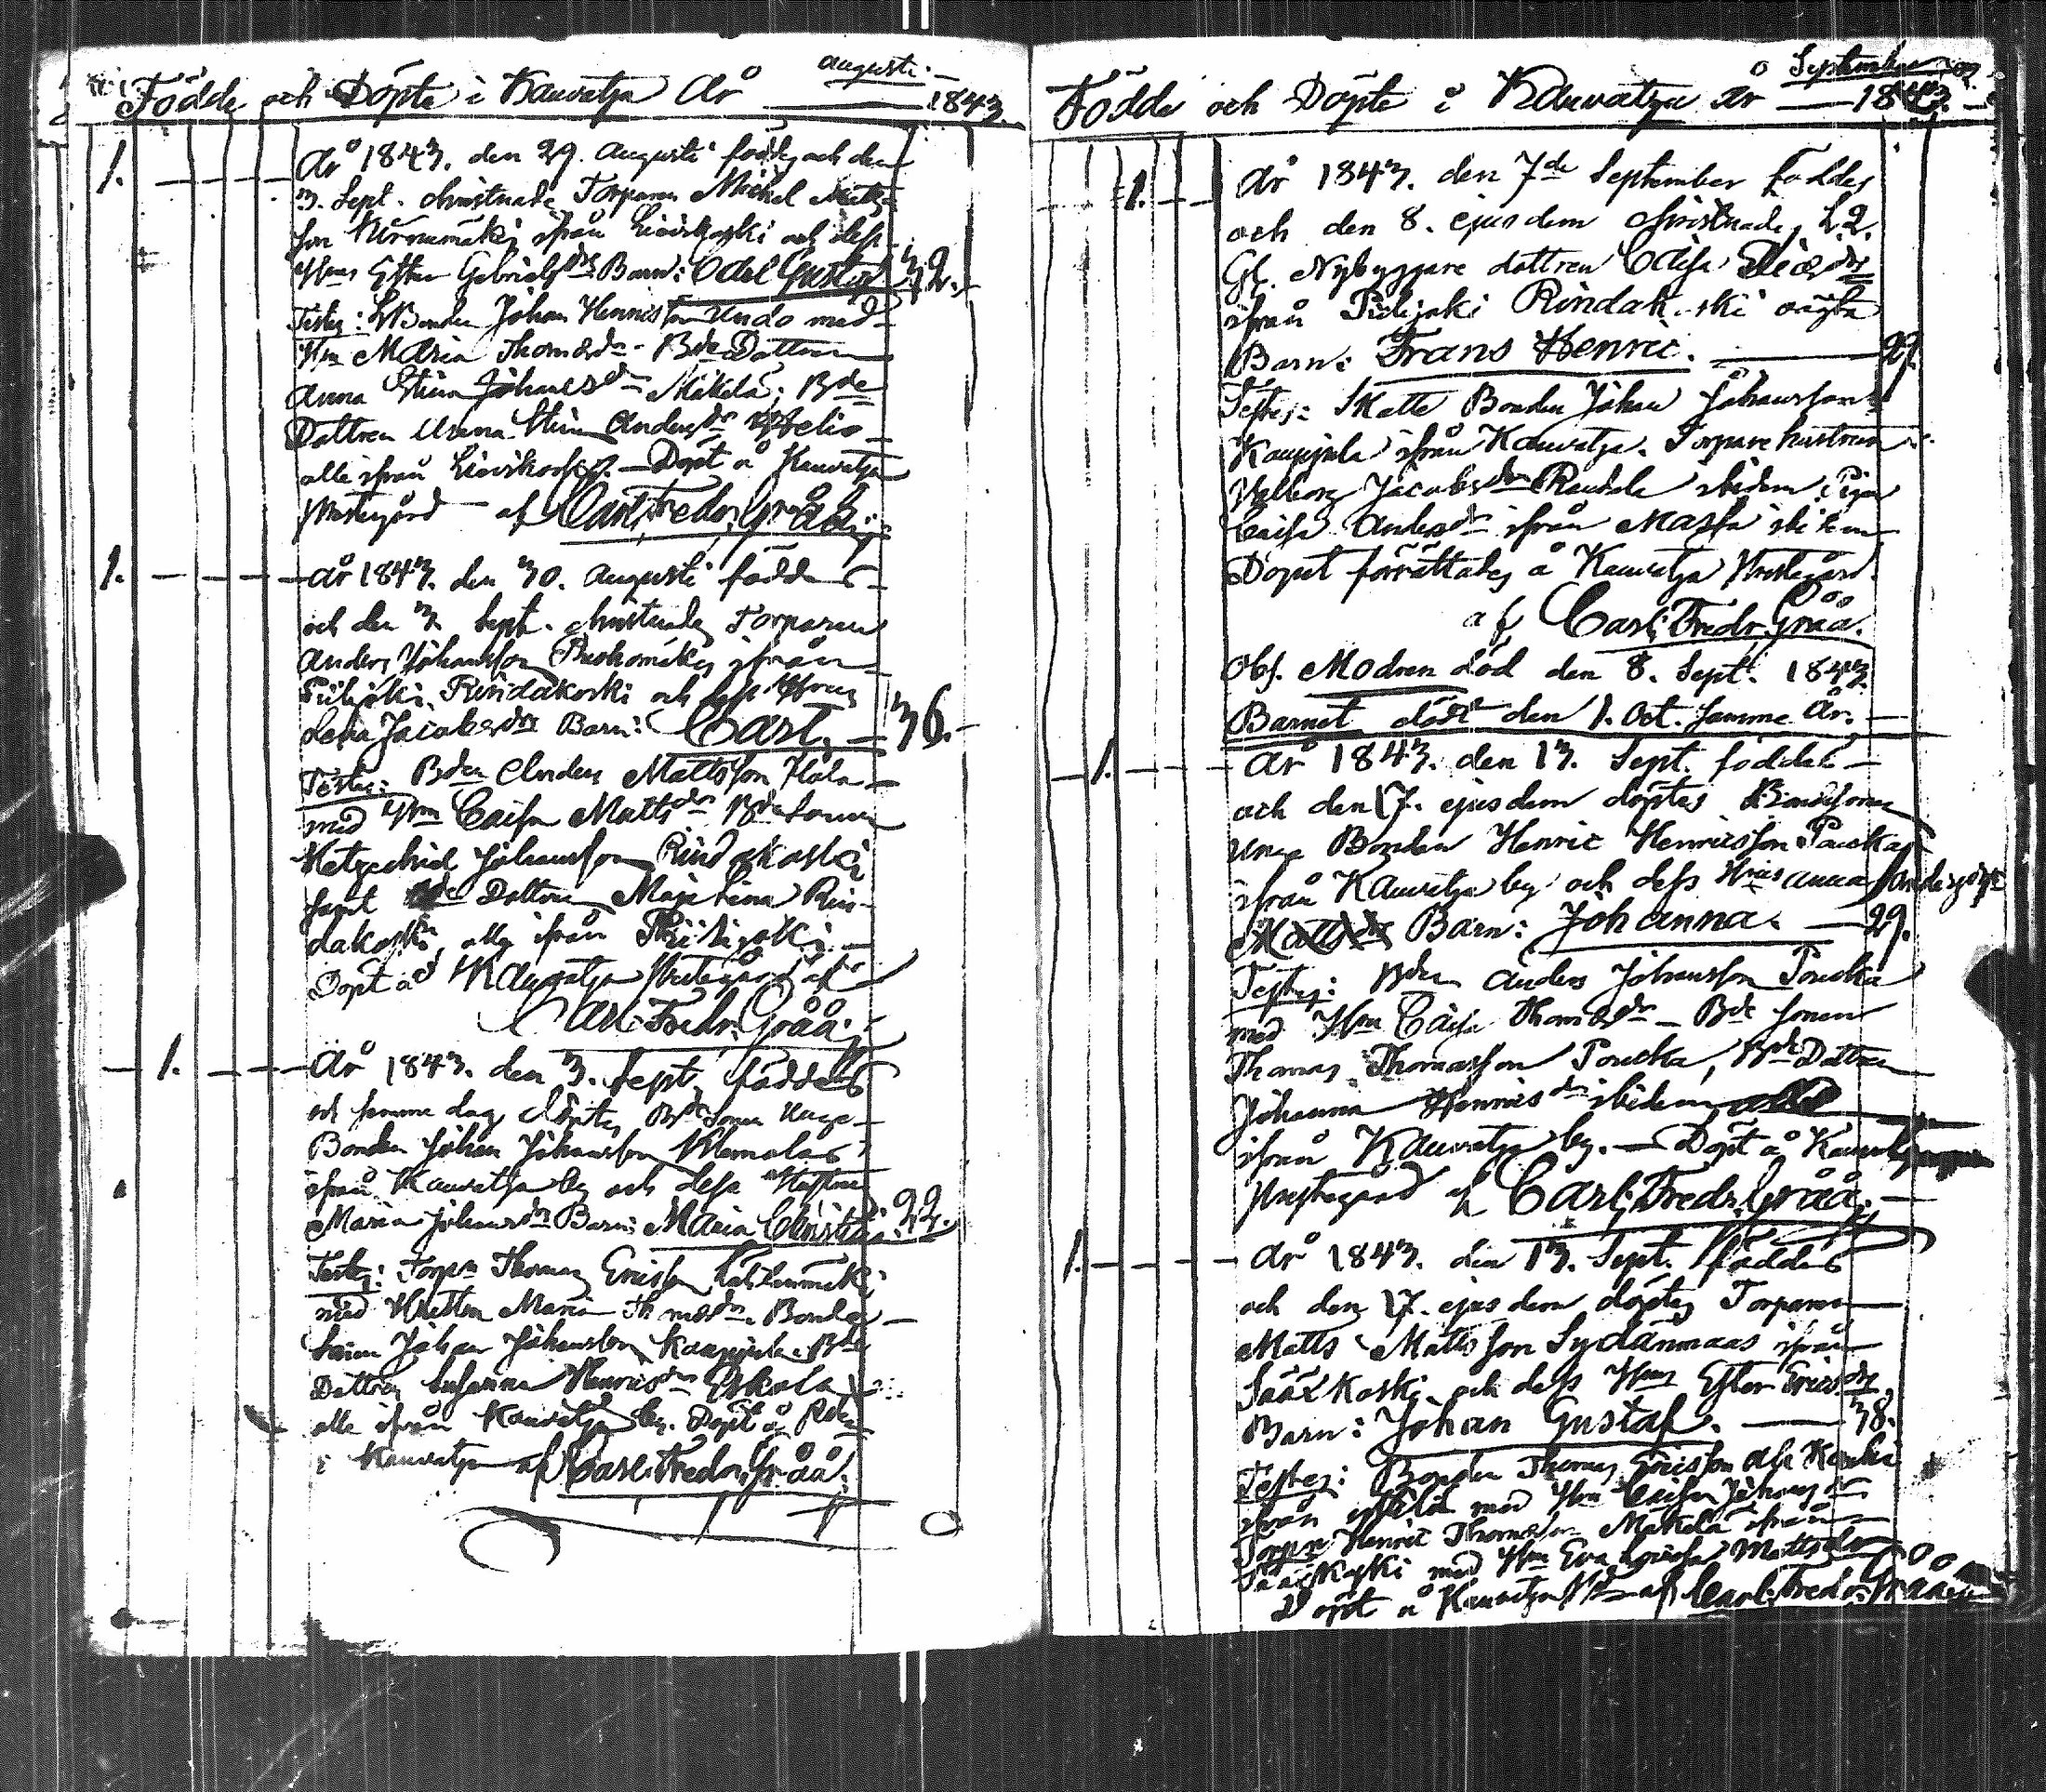 augusti
Födde och Döpte i Kauvatsa År 1843.
1. År 1843. den 29. Augusti föddes och den
3. Sept. christnades Torparen Michel Matts-
son ifrån Leivikoski och dess
Hus Ester Gabrielsdrs Barn: Odel Gustaf 32.
Testes: Bonden Johan Henricsson Undo med
Hn Maria Thomædr. Bde Dottren
Anna Stina Johansdr Mäkelä; Bde
Dottren Stina Andersdr
alla ifrån Leivikoski. Döpt å Kauvatsa
Prestegård af Carl Fredr. Gråå.
1. År 1843. den 30. Augusti föddes
och den 3. Sept. christnades Torparen
Anders Johansson ifrån
Rindakoski och dess Hus
Lena Jacobsdrs Barn: Carl. 36.
Testes: Bden Anders Mattsson
med Hn Caisa Mattsdr Bde Sonen
Johansson Rindakoski
samt Dottren Maja Lena Rin-
dakoski, alla ifrån
Döpt å Kauvatsa Prestegård af
Carl Fredr. Gråå.
1. År 1843. den 3. Sept. föddes
och samma dag döptes Bde Sonen Unge
Bonden Johan Johansson Klemola
ifrån Kauvatsa by och dess Hustrus
Maria Johansdrs Barn: Maria Christina. 22.
Testes: Torpn Thomas Ericsson
med Hustrun Maria Thomædr. Bonde
Sonen Johan Johansson Kauppila Bde
Dottren Susanna Henricsdr Eskola
alla ifrån Kauvatsa by. Döpt å
i Kauvatsa af Carl Fredr. Gråå.
September
Födde och Döpte i Kauvatsa År 1843.
1. År 1843. den 7de September föddes
och den 8. ejusdem christnades
Nybyggare dottren Caisa
ifrån oägta
Barn: Frans Henric. 29.
Testes: Skatte Bonden Johan Johansson
Kauppila ifrån Kauvatsa. Torpare hustrun
Walborg Jacobsdr ibidem Pigan
Caisa Andersdr ifrån
Dopet förrättades å Kauvatsa Prestegård.
af Carl Fredr. Gråå.
Obs. Modren död den 8. Sept. 1843.
Barnet dödt den 1. Oct. samma År.
1. År 1843. den 13. Sept. föddes
och den 17. ejusdem döptes Bondesonen
Unge Bonden Henric Henricsson Pouska
ifrån Kauvatsa by och dess Hus Anna
Barn: Johanna. 29.
Testes: Bden Anders Johansson Pouska
med Hn Caisa Thomædr Bde Sonen
Thomas Thomasson Pouska, Bde Dottren
Johanna Henricsdr ibidem
ifrån Kauvatsa by. Döpt å Kauvatsa
Prestegård af Carl Fredr. Gråå.
1. År 1843. den 13. Sept. föddes
och den 17. ejusdem döptes Torparen
Matts Mattsson Sydänmaas ifrån
Sääxkoski och dess Hus Ester Ericsdrs
Barn: Johan Gustaf. 38.
Testes: Bonden Thomas Ericsson
ifrån med Hn Caisa Johansdr
Torpn Henric Thomasson Mäkelä ifrån
Sääxkoski med Hn Eva Lovisa Mattsdr
Döpt å Kauvatsa af Carl Fredr. Gråå.